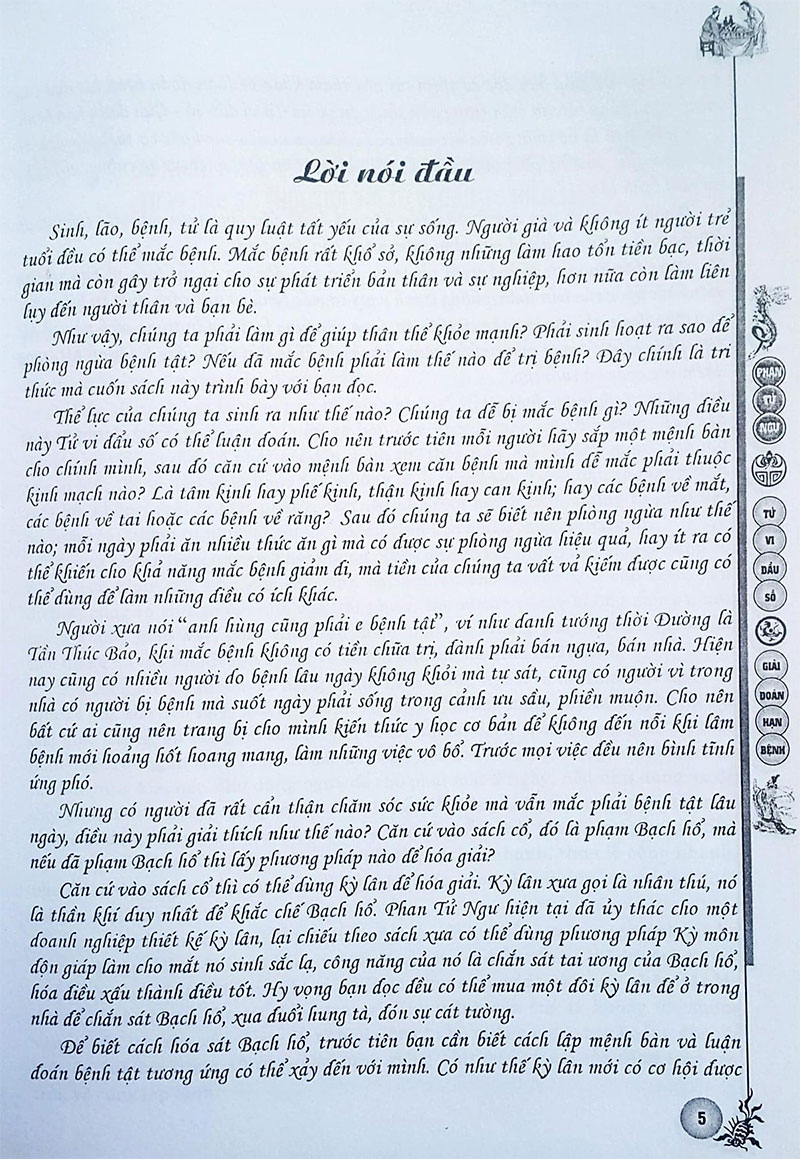 Lời nói đầu
Sinh, lão, bệnh, tử là quy luật tất yếu của sự sống. Người già và không ít người trẻ
tuổi đều có thể mắc bệnh. Mắc bệnh rất khổ sở, không những làm hao tổn tiền bạc, thời
gian mà còn gây trở ngại cho sự phát triển bản thân và sự nghiệp, hơn nữa còn làm liên
lụy đến người thân và bạn bè.
Như vậy, chúng ta phải làm gì để giúp thân thể khỏe mạnh? Phải sinh hoạt ra sao để
phòng ngừa bệnh tật? Nếu đã mắc bệnh phải làm thế nào để trị bệnh? Đây chính là tri
thức mà cuốn sách này trình bày với bạn đọc.
Thể lực của chúng ta sinh ra như thế nào? Chúng ta dễ bị mắc bệnh gì? Những điều
này Tử vi đẩu số có thể luận đoán. Cho nên trước tiên mỗi người hãy sắp một mệnh bàn
cho chính mình, sau đó căn cứ vào mệnh bàn xem căn bệnh mà mình dễ mắc phải thuộc
kinh mạch nào? Là tâm kinh hay phế kinh, thận kinh hay can kinh; hay các bệnh về mắt,
các bệnh về tai hoặc các bệnh về răng? Sau đó chúng ta sẽ biết nên phòng ngừa như thế
nào; mỗi ngày phải ăn nhiều thức ăn gì mà có được sự phòng ngừa hiệu quả, hay ít ra có
thể khiến cho khả năng mắc bệnh giảm đi, mà tiền của chúng ta vất vả kiếm được cũng có
thể dùng để làm những điều có ích khác.
Người xưa nói "anh hùng cũng phải e bệnh tật", ví như danh tướng thời Đường là
Tần Thúc Bảo, khi mắc bệnh không có tiền chữa trị, đành phải bán ngựa, bán nhà. Hiện
nay cũng có nhiều người do bệnh lâu ngày không khỏi mà tự sát, cũng có người vì trong
nhà có người bị bệnh mà suốt ngày phải sống trong cảnh ưu sầu, phiền muộn. Cho nên
bất cứ ai cũng nên trang bị cho mình kiến thức y học cơ bản để không đến nỗi khi lâm
bệnh mới hoảng hốt hoang mang, làm những việc vô bổ. Trước mọi việc đều nên bình tĩnh
ứng phó.
Nhưng có người đã rất cẩn thận chăm sóc sức khỏe mà vẫn mắc phải bệnh tật lâu
ngày, điều này phải giải thích như thế nào? Căn cứ vào sách cổ, đó là phạm Bạch hổ, mà
nếu đã phạm Bạch hổ thì lấy phương pháp nào để hóa giải?
Căn cứ vào sách cổ thì có thể dùng kỳ lân để hóa giải. Kỳ lân xưa gọi là nhân thú, nó
là thần khí duy nhất để khắc chế Bạch hổ. Phan Tử Ngư hiện tại đã ủy thác cho một
doanh nghiệp thiết kế kỳ lân, lại chiếu theo sách xưa có thể dùng phương pháp Kỳ môn
độn giáp làm cho mắt nó sinh sắc lạ, công năng của nó là chắn sát tai ương của Bạch hổ,
hóa điều xấu thành điều tốt. Hy vọng bạn đọc đều có thể mua một đôi kỳ lân để ở trong
nhà để chắn sát Bạch hổ, xua đuổi hung tà, đón sự cát tường.
Để biết cách hóa sát Bạch hổ, trước tiên bạn cần biết cách lập mệnh bàn và luận
đoán bệnh tật tương ứng có thể xảy đến với mình. Có như thế kỳ lân mới có cơ hội được
PHAN
TỬ
NGƯ
TỬ
VI
ĐẨU
SỐ
GIẢI
ĐOÁN
HẠN
BỆNH
5